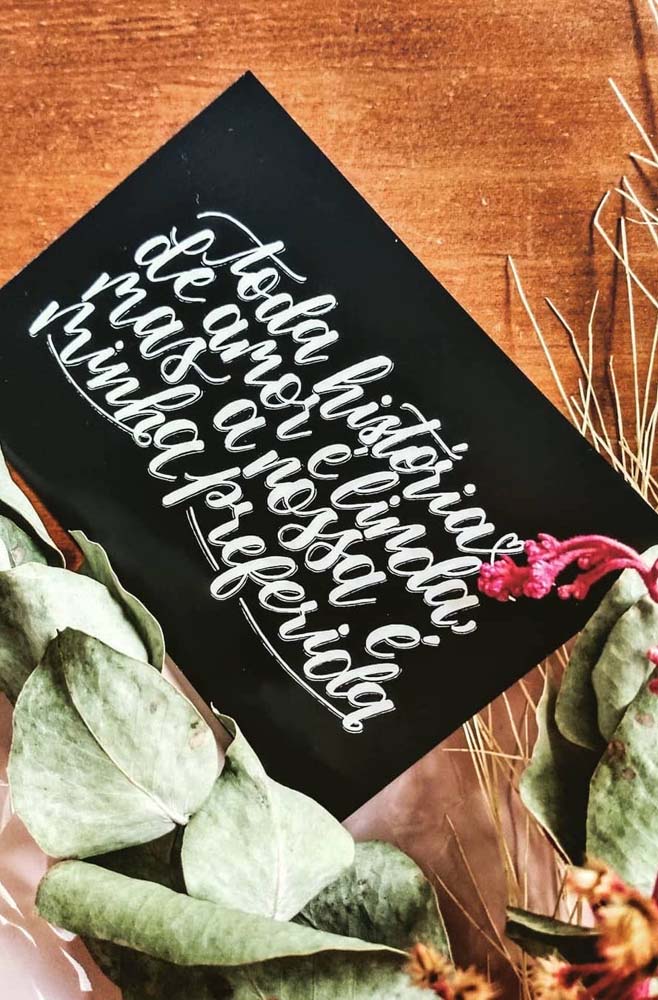 toda história
de amor é linda,
mas a nossa é
minha preferida